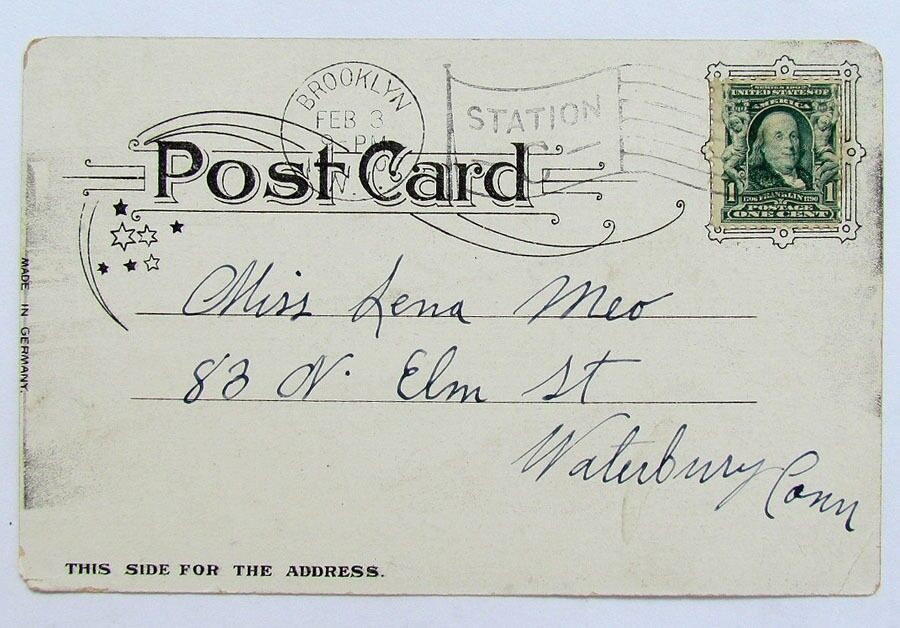 BROOKLYN
FEB 3
PM
STATION
Post Card
SERIES 1902
UNITED STATES OF
AMERICA
1 FRANKLIN 1
POSTAGE
ONE CENT
Miss Lena Meo
83 N. Elm St
Waterbury Conn
MADE IN GERMANY.
THIS SIDE FOR THE ADDRESS.